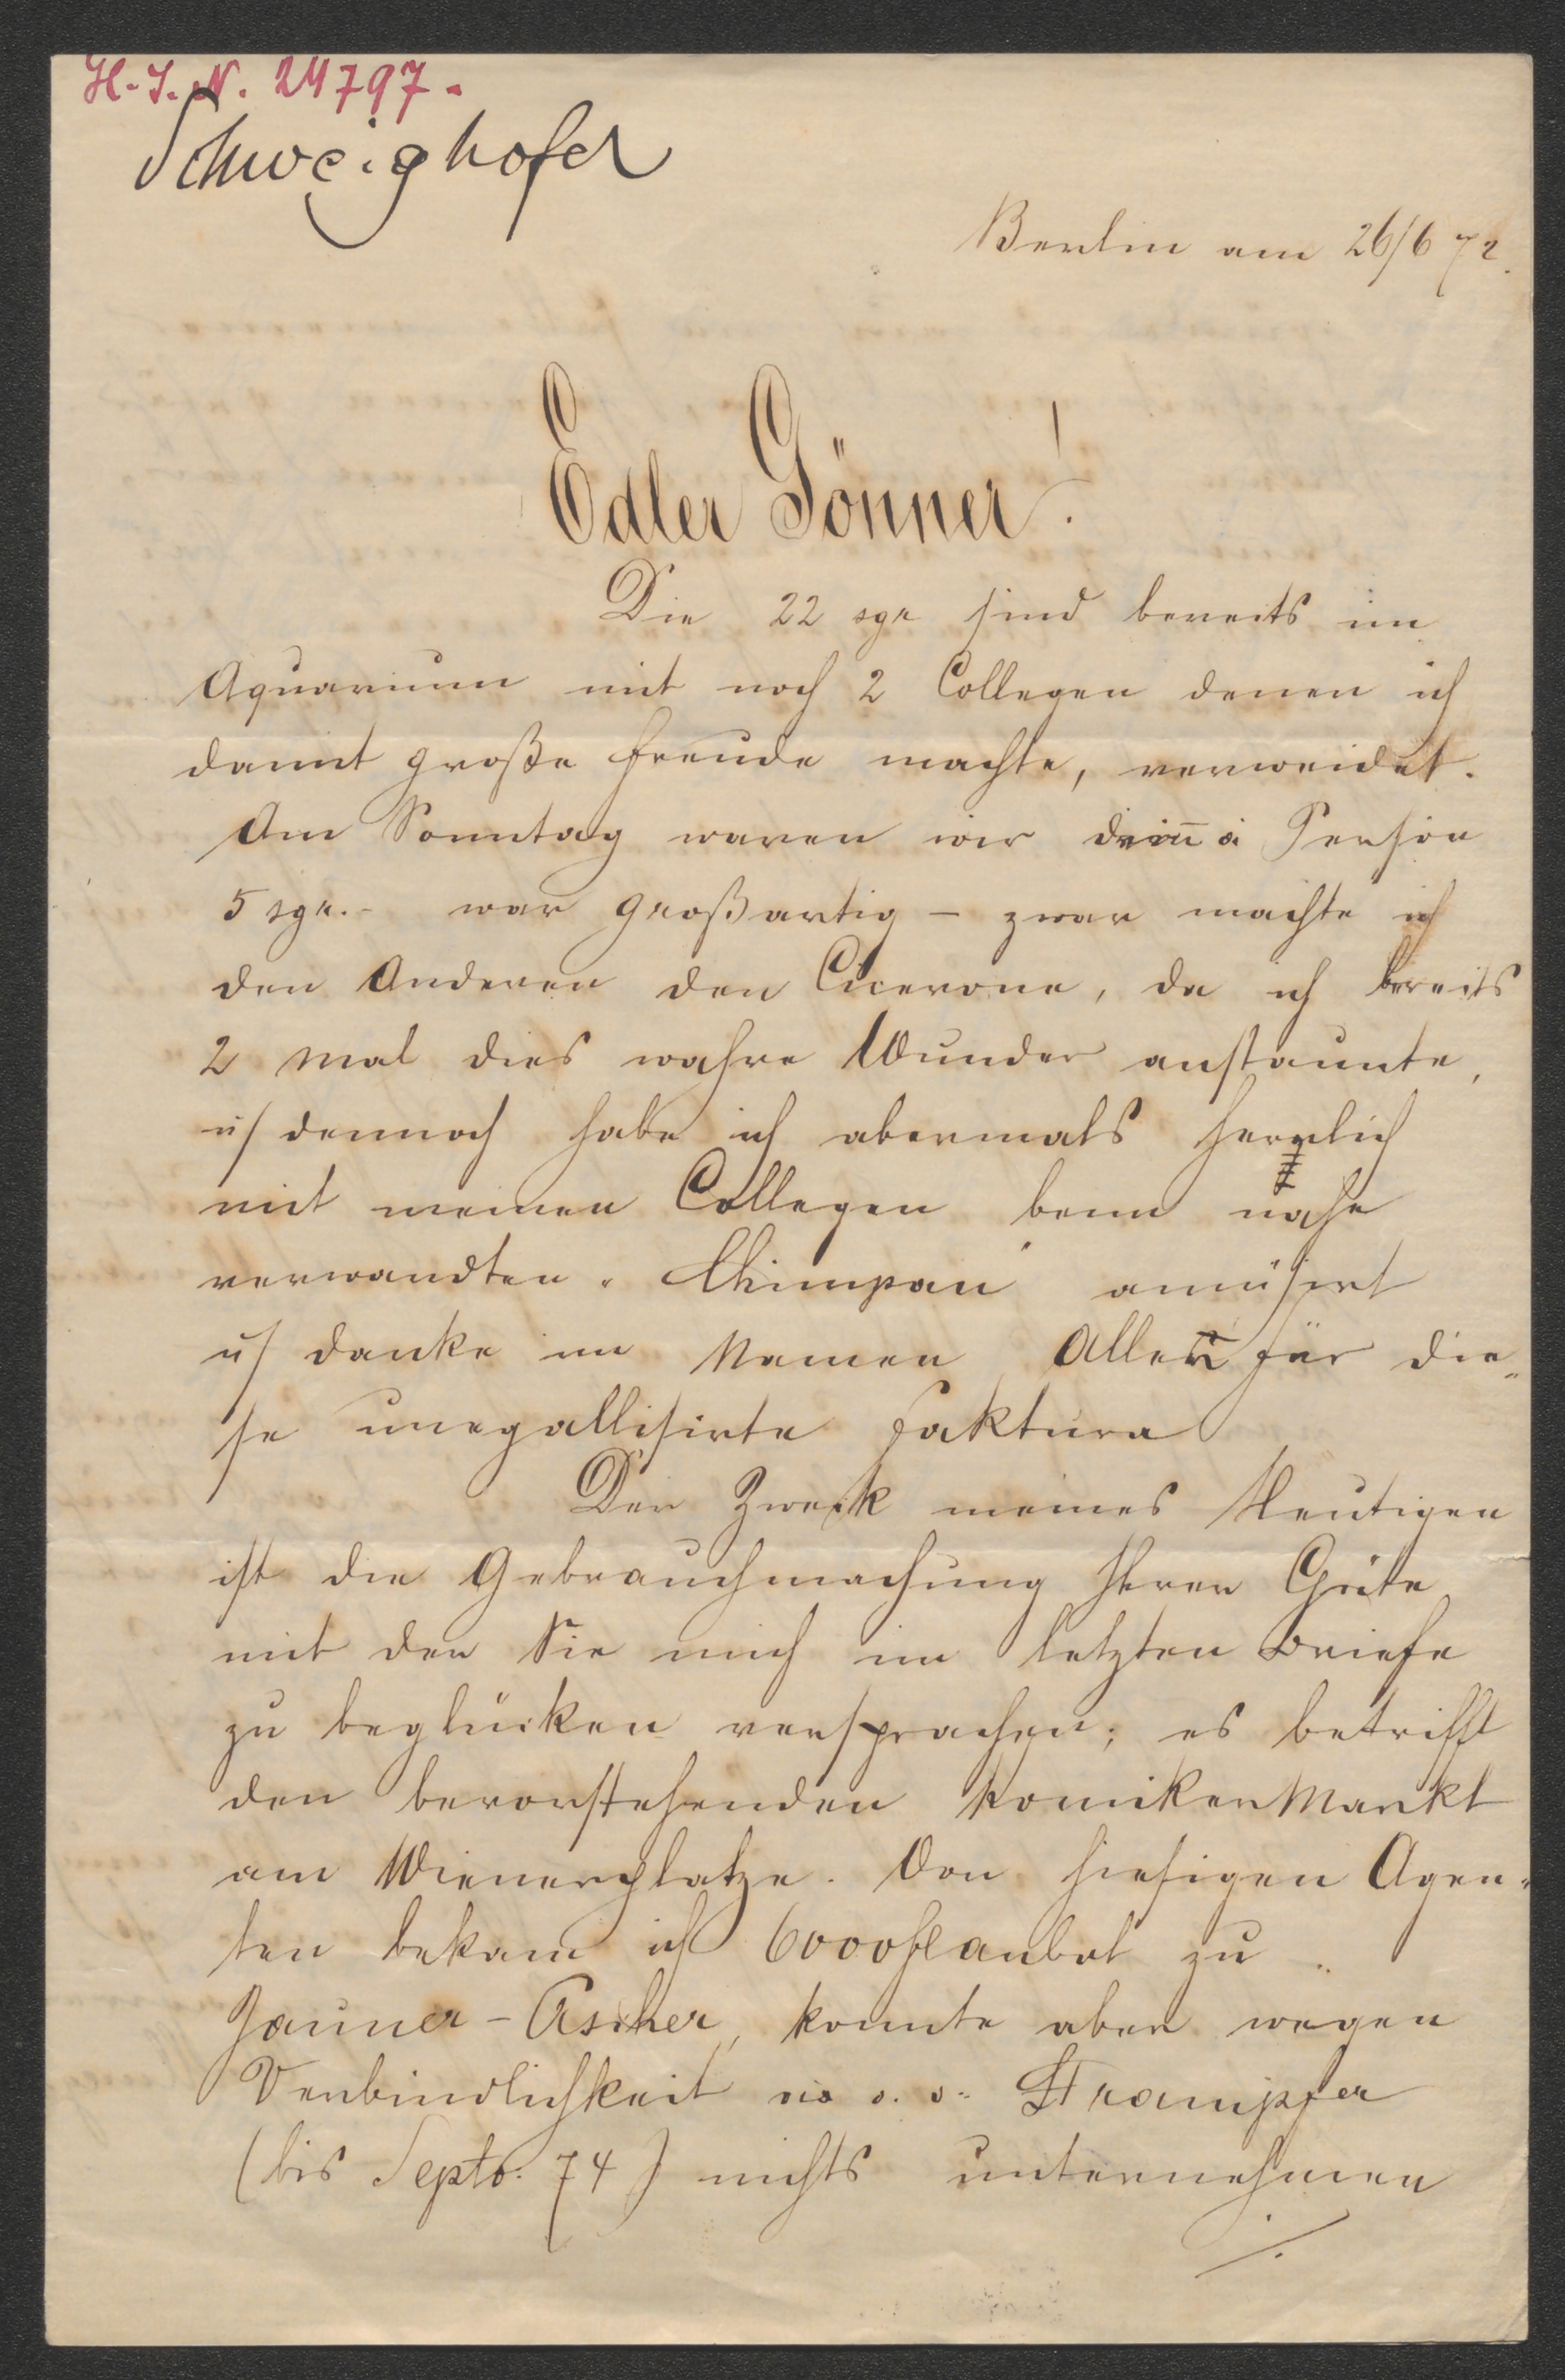 H. I. N. 24797.
Schweighofer
Berlin am 26/6 72.
Edler Gönner!
Die 22 sgr sind bereits im
Aquarium mit noch 2 Collegen denen ich
damit große Freude machte, verweidet.
Am Sonntag waren wir drin à Person
5 sgr. – war großartig – zwar machte ich
den Anderen den Cicerone, da ich bereits
2 Mal dies wahre Wunder anstaunte,
u/ dennoch habe ich abermals herrlich
mit meinen Collegen beim nahe
verwandten „Chimpan“ amüsirt
u/ danke im Namen Aller für die„
se unegallisirte Faktura
Der Zweck meines Heutigen
ist die Gebrauchmachung Ihrer Güte
mit der Sie mich im letzten Briefe
zu beglücken versprachen; es betrifft
den bevorstehenden KomikerMarkt
am Wienerplatze. Von hiesigen Agen„
ten bekam ich 6000fl anbot zu
Jauner-Ascher, konnte aber wegen
Verbindlichkeit Strampfer
(bis Septb: 74) nichts unternehmen
./.